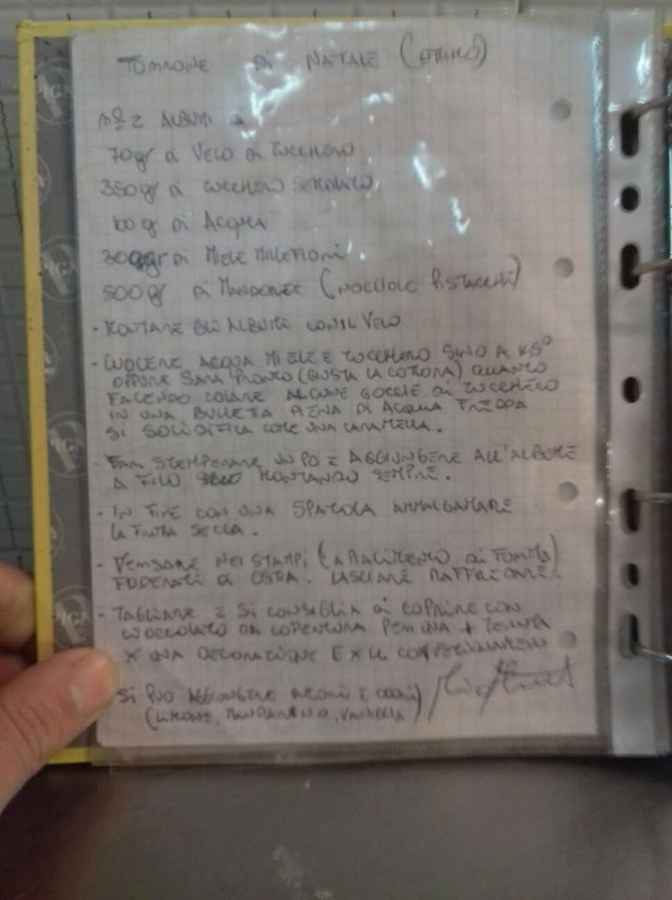 TORRONE DI NATALE (OTTIMO)
N° 2 ALBUMI
70gr di VELO di ZUCCHERO
350gr di ZUCCHERO SEMOLATO
100 gr di ACQUA
300gr di MIELE MILLEFIORI
500gr di MANDORLE (NOCCIOLE PISTACCHI)
- MONTARE GLI ALBUMI CON IL VELO
- CUOCERE ACQUA MIELE E ZUCCHERO SINO A 145°
OPPURE SARA' PRONTO (GIUSTA LA COTTURA) QUANDO
FACENDO COLARE ALCUNE GOCCIE DI ZUCCHERO
IN UNA BULLETTA PIENA DI ACQUA FREDDA
SI SOLIDIFICA COME UNA CARAMELLA.
- FAR STEMPERARE UN PO E AGGIUNGERE ALL'ALBUME
A FILO MONTANDO SEMPRE.
- IN FINE CON UNA SPATOLA AMALGAMARE
LA FRUTTA SECCA.
- VERSARE NEI STAMPI (A PIACIMENTO DI FORMA)
FODERATI DI OSTIA. LASCIARE RAFFREDDARE.
- TAGLIARE E SI CONSIGLIA DI COPRIRE CON
CIOCCOLATO DA COPERTURA
X UNA DECORAZIONE E X IL CONFEZIONAMENTO
SI PUO AGGIUNGERE AROMI E
(LIMONE, MANDARINO, VANIGLIA)
PIGNA